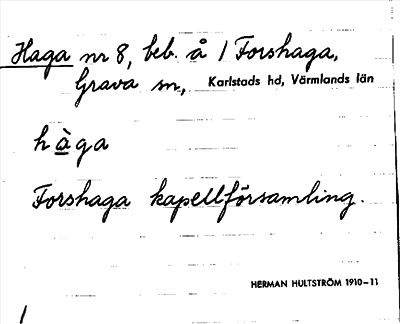 Haga nr 8, beb. å 1 Forshaga,
Grava sn, Karlstads hd, Värmlands län
hàga
Forshaga kapellförsamling.
HERMAN HULTSTRÖM 1910–11
1